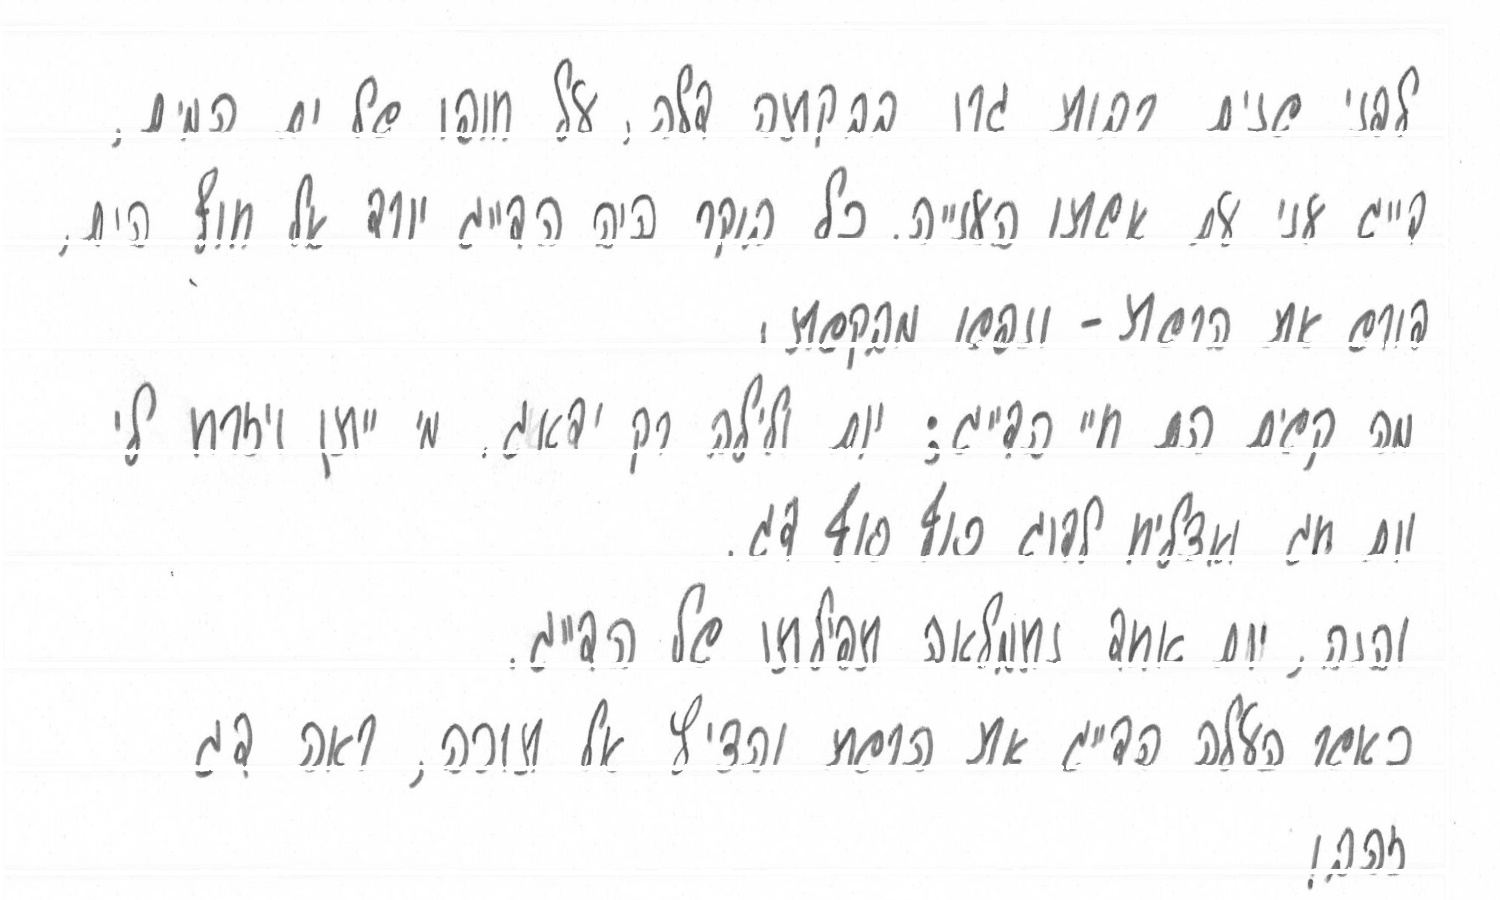 לפני שנים רבות גרו בבקתה דלה, על חופו של ים המים,
דייג עני עם אשתו הענייה. כל בוקר היה הדייג יורד אל חוף הים,
פורש את הרשת - ונפשו מבקשת:
מה קשים הם חיי הדייג; יום ולילה רק ידאג. מי ייתן ויזרח לי
יום חג ואצליח לדוג סוף סוף דג.
והנה, יום אחד נתמלאה תפילתו של הדייג.
כאשר העלה הדייג את הרשת והציץ אל תוכה, ראה דג
זהב!